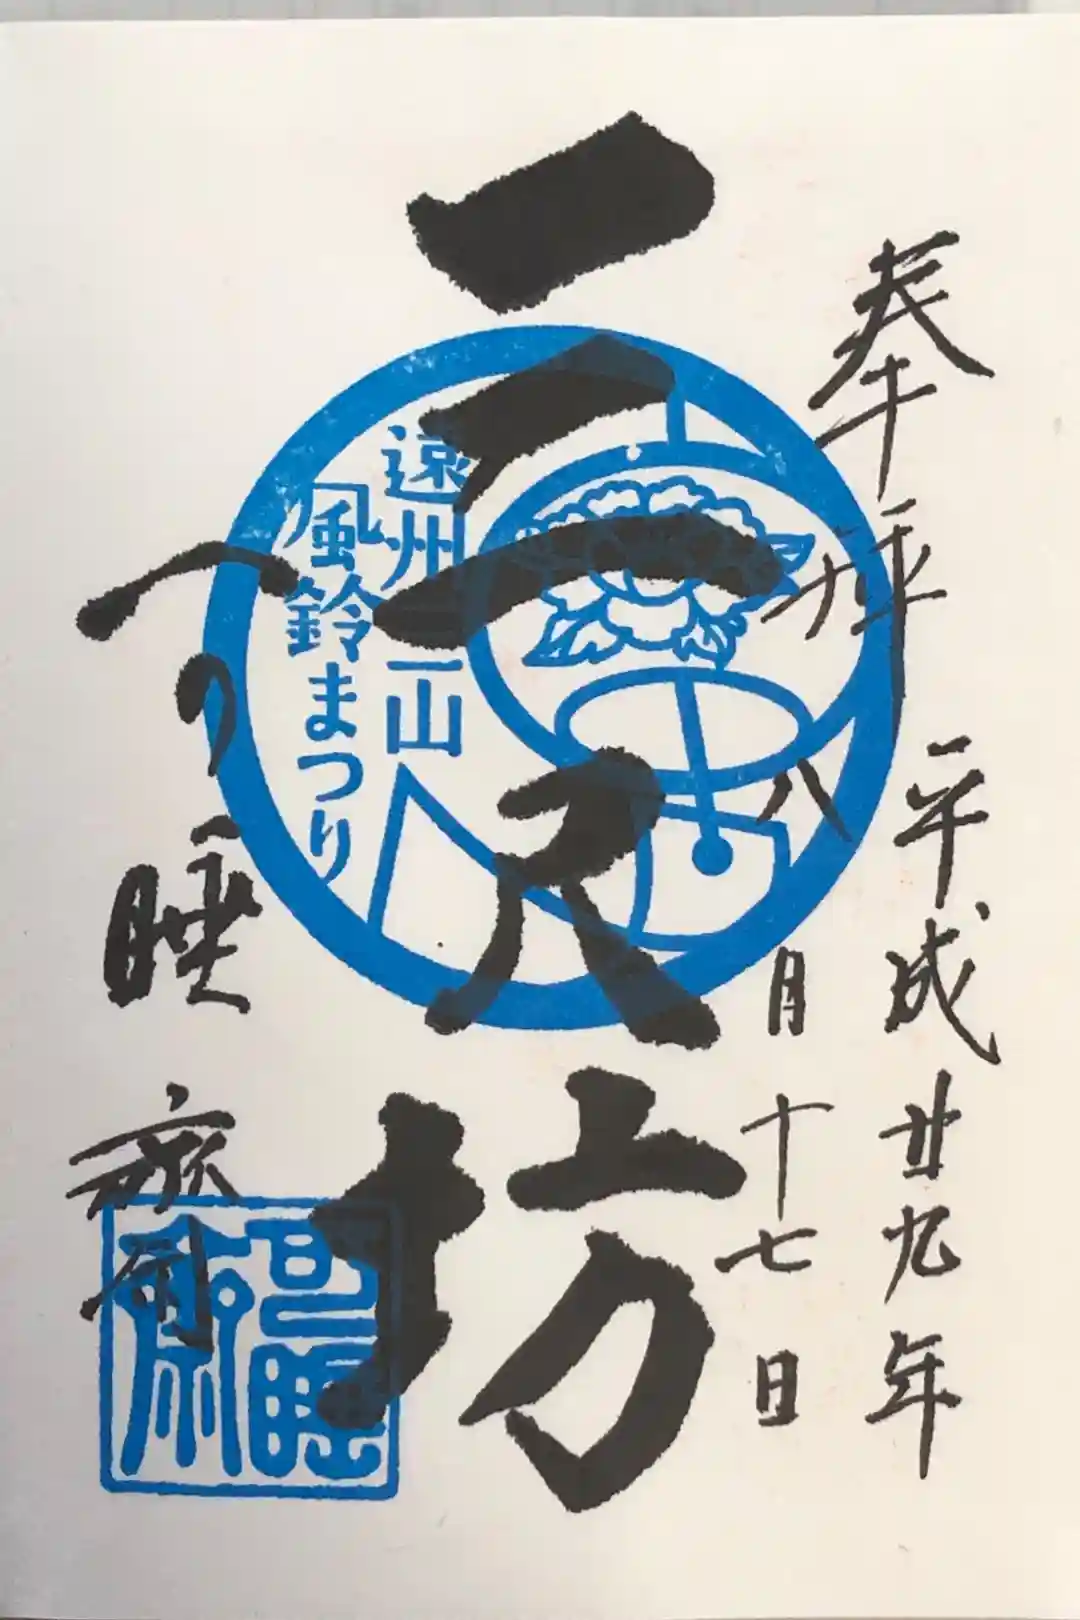 奉拝
平成廿九年
八月十七日
三尺坊
遠州三山
風鈴まつり
可睡齋
可睡齋